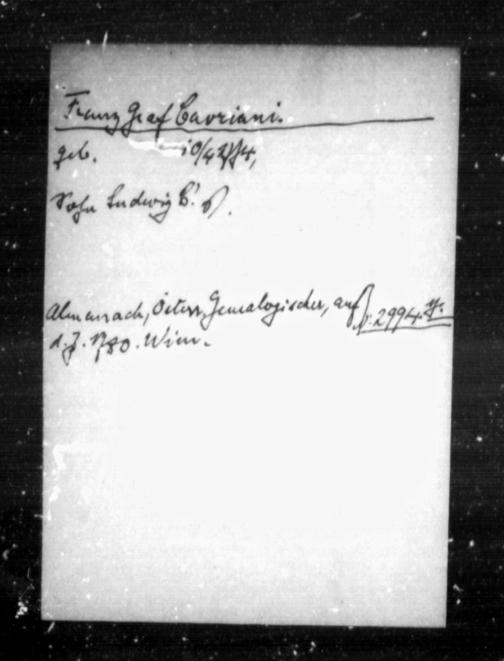 Franz Graf Cavriani.
geb.
Sohn Ludwig C!
Almanach, Österr, Genealogischer, auf
d. J. 1780. Wien.
2994.